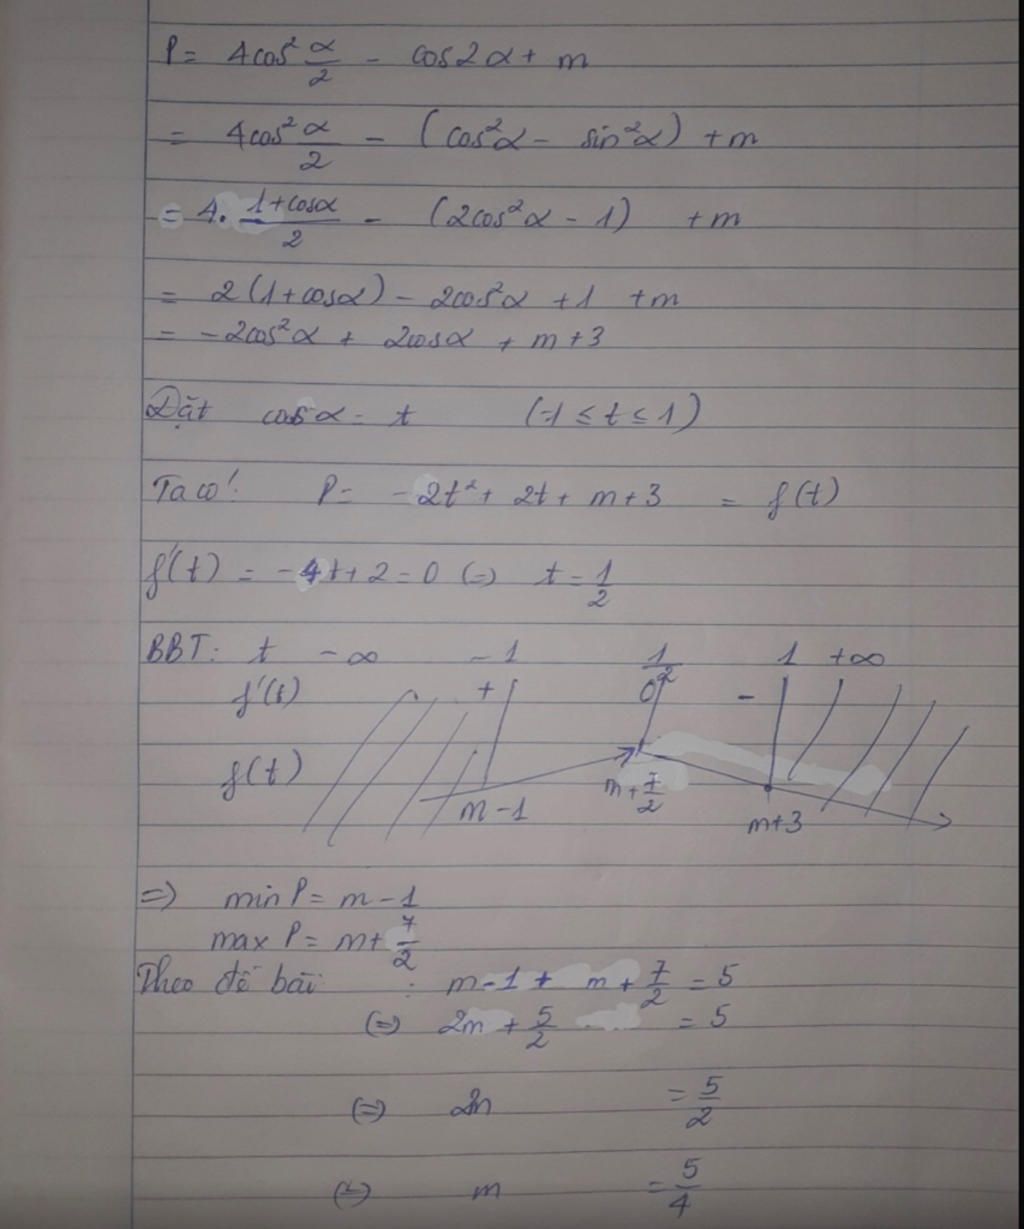 P = 4cos² α/2 - cos2α + m
= 4cos² α/2 - (cos²α - sin²α) + m
= 4. (1+cosα)/2 - (2cos²α - 1) + m
= 2(1+cosα) - 2cos²α + 1 + m
= -2cos²α + 2cosα + m+3
Đặt cosα = t (-1 ≤ t ≤ 1)
Ta có: P = -2t² + 2t + m+3 = f(t)
f'(t) = -4t+2 = 0 (=) t = 1/2
BBT: t -∞ -1 1/2 1 +∞
f'(t) + 0 -
f(t) m-1 m+7/2 m+3
=) min P = m-1
max P = m+ 7/2
Theo đề bài : m-1 + m + 7/2 = 5
(=) 2m + 5/2 = 5
(=) 2m = 5/2
(=) m = 5/4